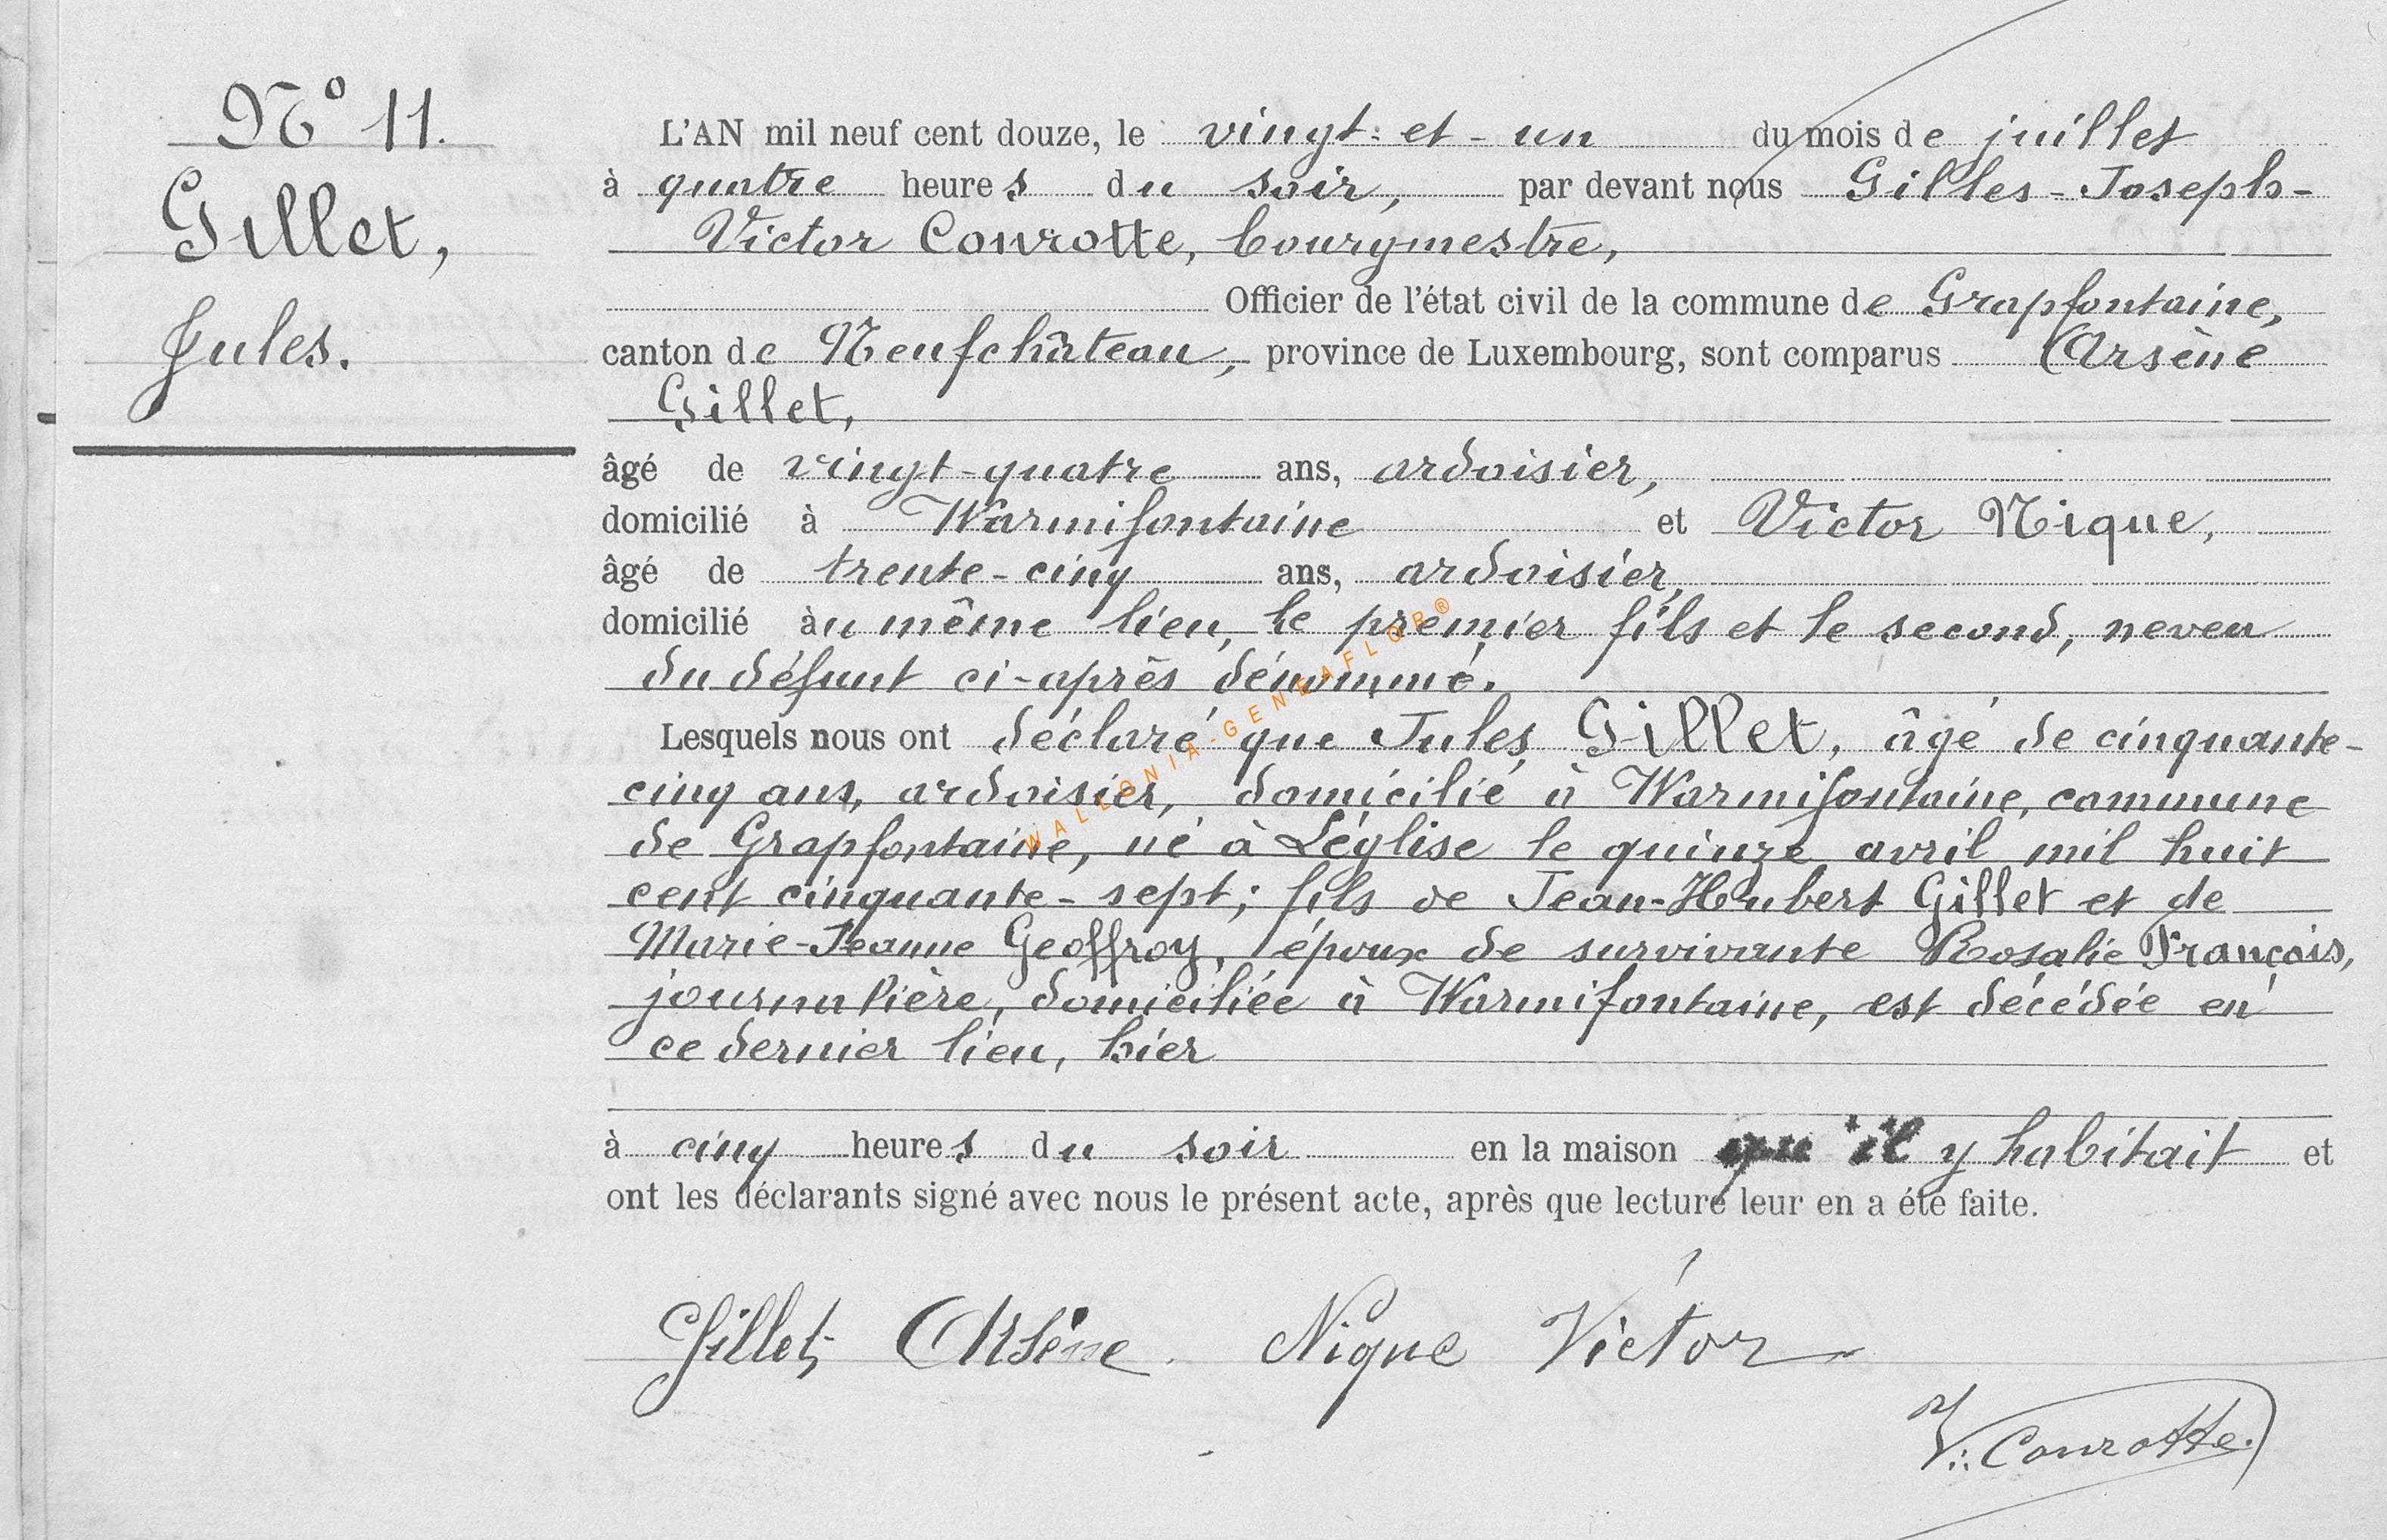 N° 11.
Gillet,
Jules.
L'AN mil neuf cent douze, le vingt-et-un du mois de juillet
à quatre heures du soir, par devant nous Gilles-Joseph-
Victor Conrotte, bourgmestre,
Officier de l'état civil de la commune de Grapfontaine,
canton de Neufchâteau, province de Luxembourg, sont comparus Arsène
Gillet,
âgé de vingt-quatre ans, ardoisier,
domicilié à Warmifontaine et Victor Nique,
âgé de trente-cinq ans, ardoisier,
domicilié au même lieu, le premier fils et le second, neveu
du défunt ci-après dénommé.
Lesquels nous ont déclaré que Jules Gillet, âgé de cinquante-
cinq ans, ardoisier, domicilié à Warmifontaine, commune
de Grapfontaine, né à Léglise le quinze avril mil huit
cent cinquante-sept; fils de Jean-Hubert Gillet et de
Marie-Jeanne Geoffroy, époux de survivante Rosalie François,
journalière, domiciliée à Warmifontaine, est décédée en
ce dernier lieu, hier
à cinq heures du soir en la maison qu'il y habitait et
ont les déclarants signé avec nous le présent acte, après que lecture leur en a été faite.
Gillet Arsène. Nique Victor
V. Conrotte.
WALLONIA-GENEAFLOR®